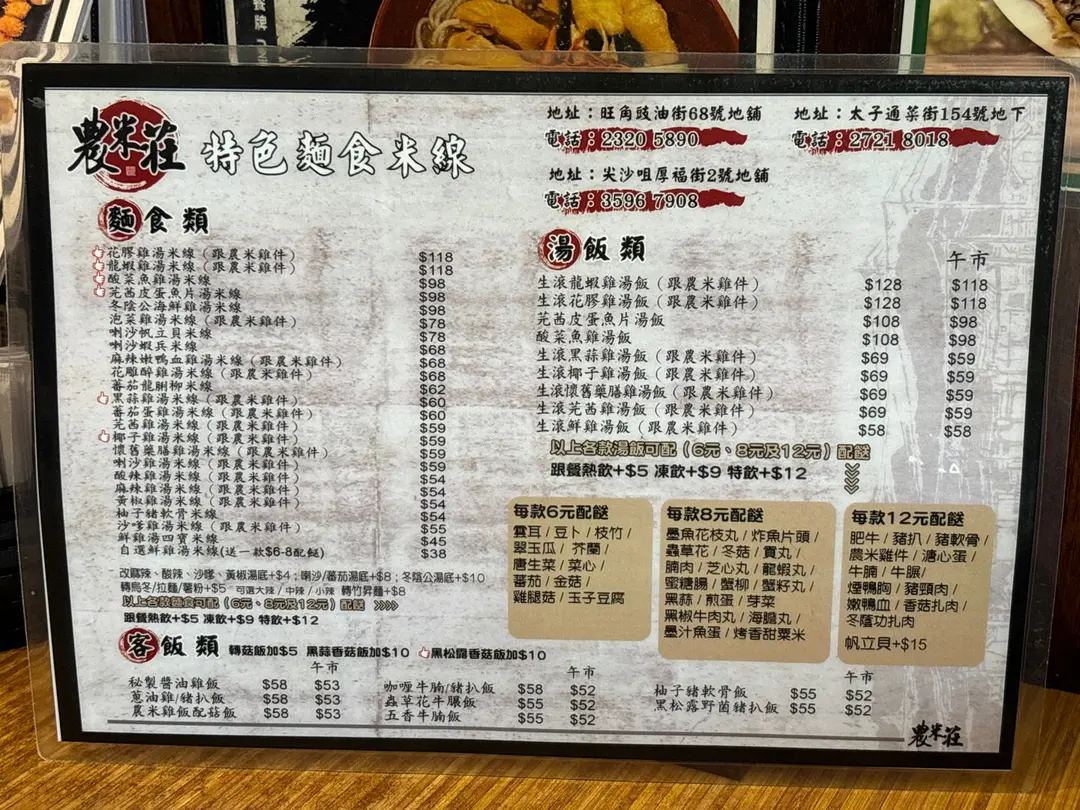 農米莊 特色麵食米線
地址：旺角豉油街68號地舖
電話：2320 5890
地址：太子通菜街154號地下
電話：2721 8018
地址：尖沙咀厚福街2號地舖
電話：3596 7908
麵食類
花膠雞湯米線（跟農米雞件） $118
龍蝦雞湯米線（跟農米雞件） $118
酸菜魚雞湯米線 $98
芫茜皮蛋魚片湯米線 $98
冬陰公海鮮雞湯米線 $98
泡菜雞湯米線（跟農米雞件） $78
喇沙帆立貝米線 $78
喇沙蝦兵米線 $68
麻辣嫩鴨血雞湯米線（跟農米雞件） $68
花雕醉雞湯米線（跟農米雞件） $68
蕃茄龍脷柳米線 $62
黑蒜雞湯米線（跟農米雞件） $60
蕃茄蛋雞湯米線（跟農米雞件） $60
芫茜雞湯米線（跟農米雞件） $59
椰子雞湯米線（跟農米雞件） $59
懷舊藥膳雞湯米線（跟農米雞件） $59
喇沙雞湯米線（跟農米雞件） $59
酸辣雞湯米線（跟農米雞件） $54
麻辣雞湯米線（跟農米雞件） $54
黃椒雞湯米線（跟農米雞件） $54
柚子豬軟骨米線 $54
沙嗲雞湯米線（跟農米雞件） $55
鮮雞湯四寶米線 $45
自選鮮雞湯米線(送一款$6-8配餸) $38
改麻辣、酸辣、沙嗲、黃椒湯底+$4；喇沙/蕃茄湯底+$8；冬陰公湯底+$10
轉烏冬/拉麵/薯粉+$5 可選大辣 / 中辣 / 小辣 轉竹昇麵+$8
以上各款麵食可配（6元、8元及12元）配餸 >>>>
跟餐熱飲+$5 凍飲+$9 特飲+$12
湯飯類 午市
生滾龍蝦雞湯飯（跟農米雞件） $128 $118
生滾花膠雞湯飯（跟農米雞件） $128 $118
芫茜皮蛋魚片湯飯 $108 $98
酸菜魚雞湯飯 $108 $98
生滾黑蒜雞湯飯（跟農米雞件） $69 $59
生滾椰子雞湯飯（跟農米雞件） $69 $59
生滾懷舊藥膳雞湯飯（跟農米雞件） $69 $59
生滾芫茜雞湯飯（跟農米雞件） $69 $59
生滾鮮雞湯飯（跟農米雞件） $58 $58
以上各款湯飯可配（6元、8元及12元）配餸
跟餐熱飲+$5 凍飲+$9 特飲+$12
每款6元配餸
雲耳 / 豆卜 / 枝竹 /
翠玉瓜 / 芥蘭 /
唐生菜 / 菜心 /
蕃茄 / 金菇 /
雞腿菇 / 玉子豆腐
每款8元配餸
墨魚花枝丸 / 炸魚片頭 /
蟲草花 / 冬菇 / 貢丸 /
腩肉 / 芝心丸 / 龍蝦丸 /
蜜糖腸 / 蟹柳 / 蟹籽丸 /
黑蒜 / 煎蛋 / 芽菜
黑椒牛肉丸 / 海膽丸 /
墨汁魚蛋 / 烤香甜粟米
每款12元配餸
肥牛 / 豬扒 / 豬軟骨 /
農米雞件 / 溏心蛋 /
牛腩 / 牛𦟌 /
煙鴨胸 / 豬頸肉 /
嫩鴨血 / 香菇扎肉 /
冬蔭功扎肉
帆立貝+$15
客飯類 轉菇飯加$5 黑蒜香菇飯加$10 黑松露香菇飯加$10
午市
秘製醬油雞飯 $58 $53
蔥油雞/豬扒飯 $58 $53
農米雞飯配菇飯 $58 $53
午市
咖喱牛腩/豬扒飯 $58 $52
蟲草花牛𦟌飯 $55 $52
五香牛腩飯 $55 $52
午市
柚子豬軟骨飯 $55 $52
黑松露野菌豬扒飯 $55 $52
農米莊